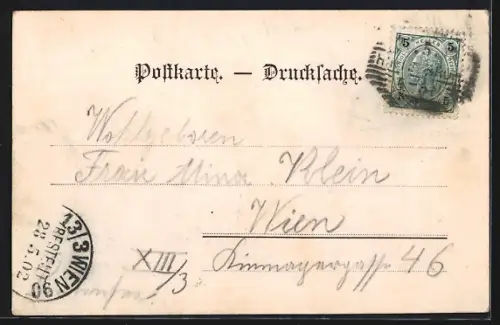 Postkarte. — Drucksache.
Wohlgeboren
Frau Mina Klein
Wien
XIII/3
Linzmayergasse 46
13/3 WIEN 90
BESTELLT
28.5.02